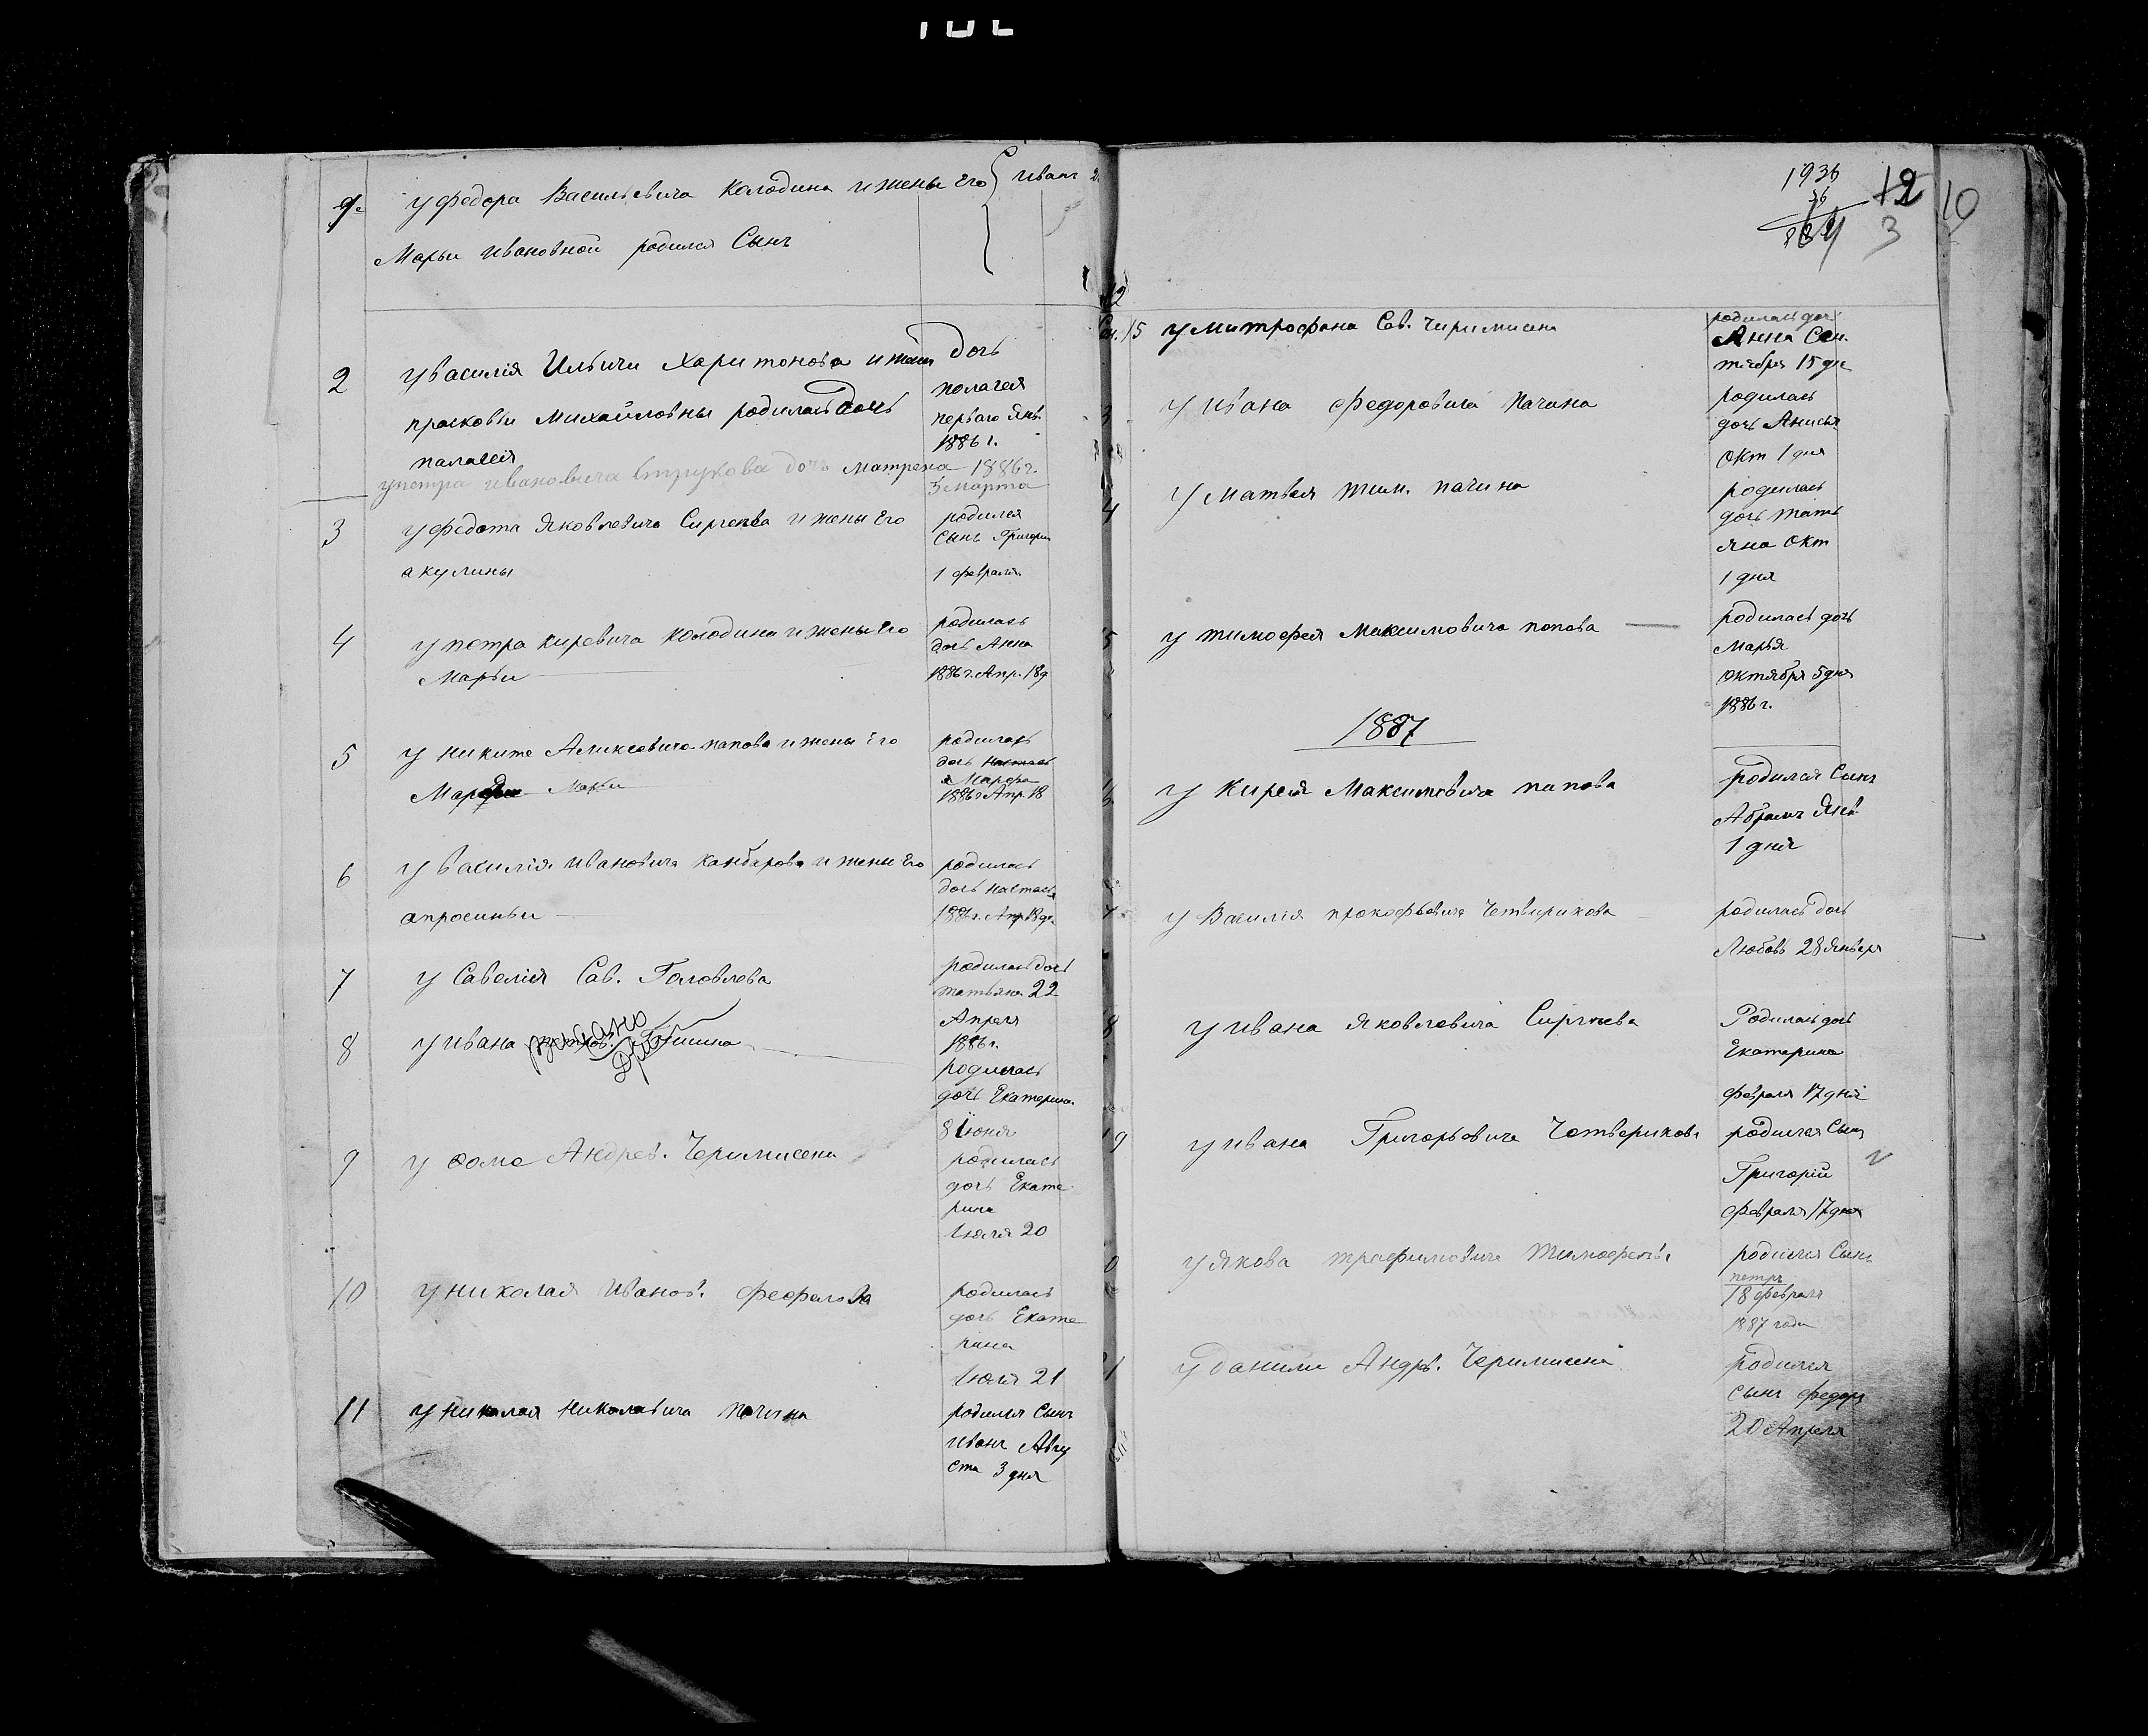 1. у Федора Васильевича Колодина и жены Его Иванъ
Марьи ивановной родился Сынъ
2 у василія Ильичи Харитонова и жены дочь
полагея
прасковьи Михайловны родилась Дочь первого Янв.
1886 г.
палагея
упетра ивановича Струкова дочь Матрена 1886 г.
3 марта
3 у Федота Яковлевича Сиргеева и жены Его родился
Сынъ Григори
акулины 1 февраля
4 у петра киревича колодина и жены Его родилась
дочь Анна
Марьи 1886 г. Апр. 18 д
5 у никите Аликсевича папова и жены Его родилась
дочь
Марфа
Марьи 1886 г Апр. 18
6 у василія ивановича и жены Его родилась
дочь настась
апросиньи 1886 г. Апр 18 дн.
7 у Савелія Сав. Головлева родилась дочь
татьяна 22
Апреля
8 у ивана 1886 г.
родилась
дочь Екатерина
8 Июня
9 у Фоме Андрев. Черимисена родилась
дочь Екате
рина
Июля 20
10 у николая Иванов. родилась
дочь Екате
рина
Июля 21
11 у николая николавича пачина родился Сынъ
иванъ Авгу
ста 3 дня
1936
12
10
3
12
Сен. 15 у митрофана Сав. Чиримисена родилась доч
Анна Сен.
тября 15 дн
3 у ивана Федоровича пачина родилась
дочь Анисья
Окт 1 дня
4 у матвея тим. пачина родилась
дочь тать
яна Окт
1 дня
5 у тимофея Максимовича попова родилась дочь
Марья
октября 5 дня
1886 г.
1887
6 у Кирея Максимовича папова родился Сынъ
Абрамъ Янв
1 дня
7 у Василія прокофьевича Четвирикова родилась дочь
Любовь 28 Января
8 у ивана Яковлевича Сиргеева Родилась дочь
Екатерина
февраля 17 дня
19 у ивана Григорьевича Четверикова родился Сынъ
Григорій
февраля 17 дня
0 у якова трафимовича Тимофеева родился Сынъ
петръ
18 февраля
1887 года
21 у данили Андрв. Черимисена родился
сынъ федоръ
20 Апреля